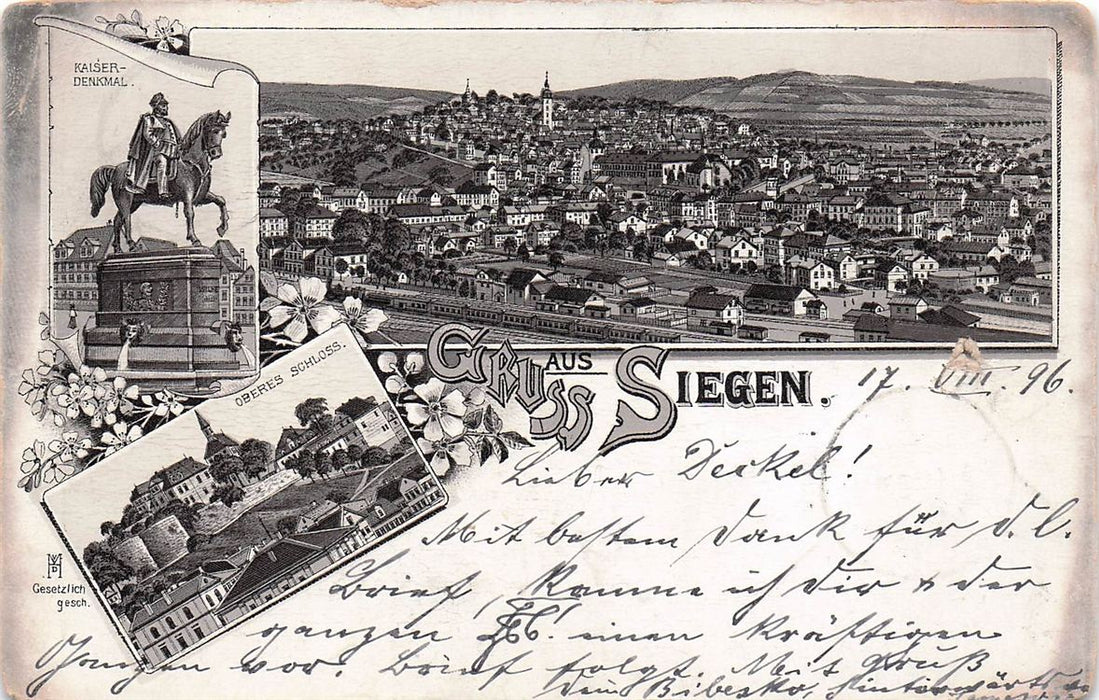 KAISER-
DENKMAL.
OBERES SCHLOSS.
GRUSS AUS SIEGEN.
17. VIII. 96.
Lieber Deckel!
Mit bestem Dank für d. l.
Brief, komme ich dir & der
ganzen einen kräftigen
Ganzen vor. Brief folgt. Mit Gruß
dein Bibesko,
Gesetzlich
gesch.